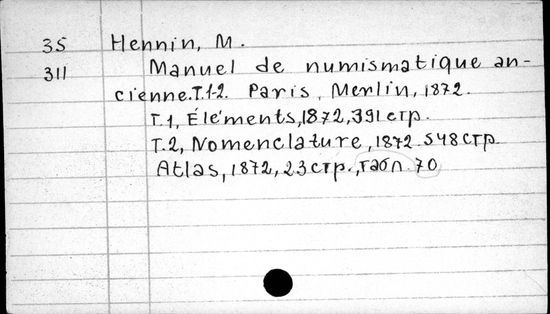 35 Hennin, M.
311 Manuel de numismatique an-
cienne.T.1-2. Paris, Merlin, 1872.
T.1, Éléments, 1872, 391 стр.
T.2, Nomenclature, 1872. 548 стр.
Atlas, 1872, 23 стр., табл. 70